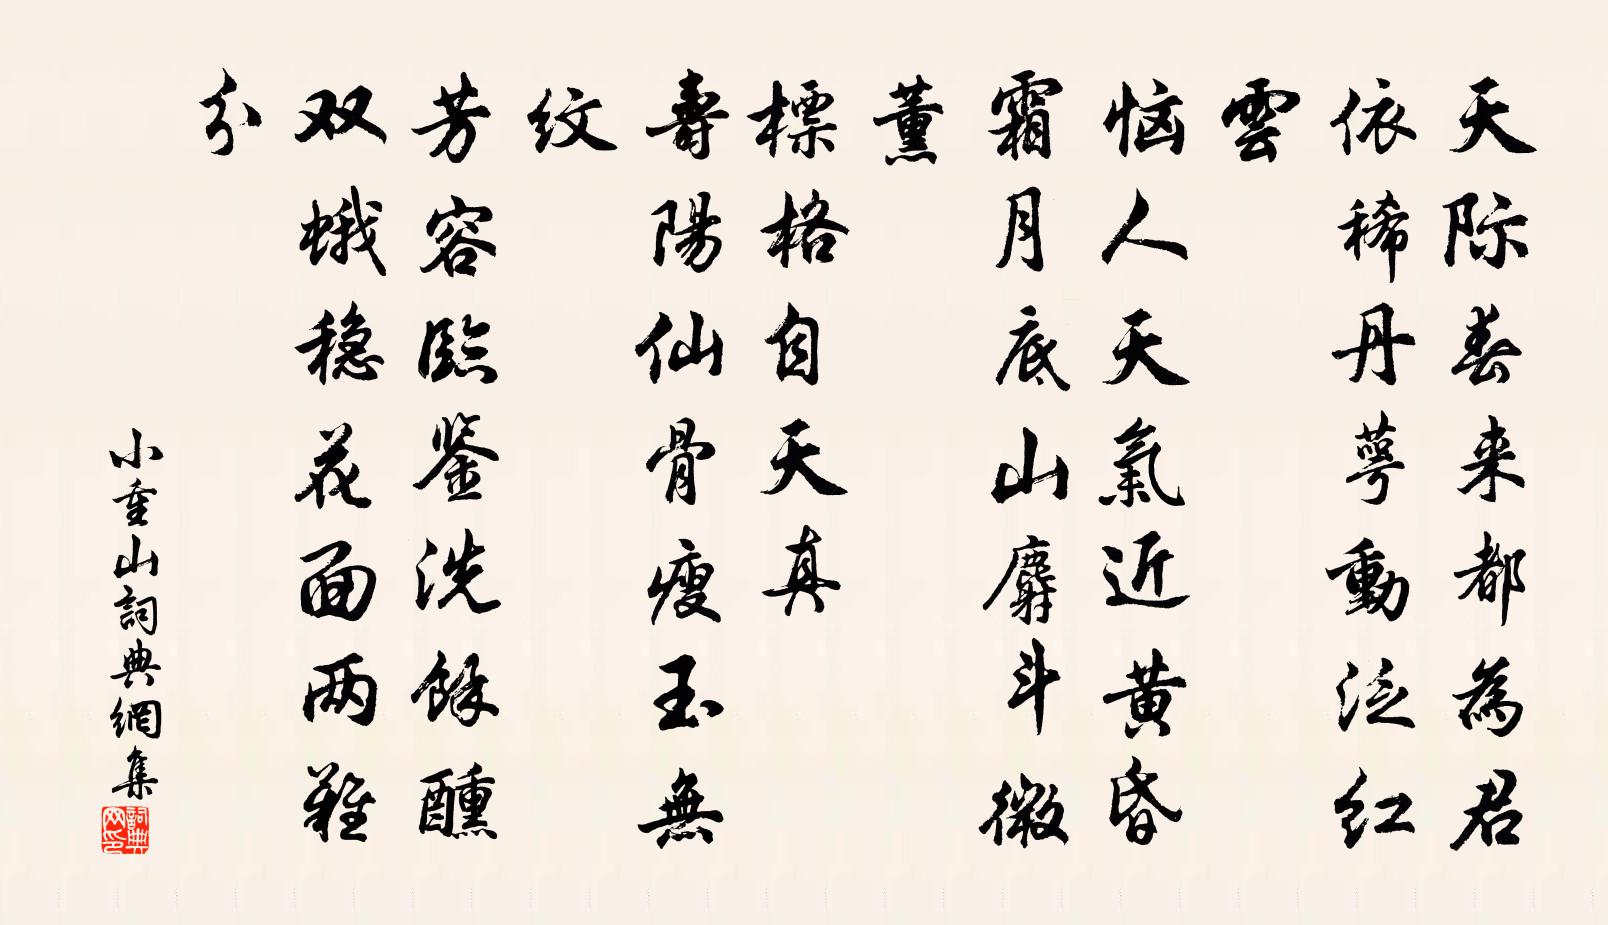 天际春来都為君
依稀丹萼動泛红
雲
恼人天氣近黄昏
霜月底山麝斗微
薰
標格自天真
壽陽仙骨瘦玉無
纹
芳容臨鉴洗餘醺
双蛾稳花面两難
分
小重山詞典網集
詞典
网印